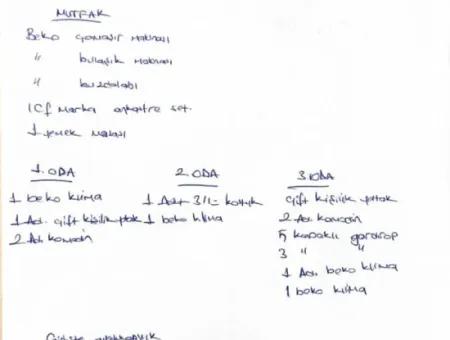 MUTFAK
Beko çamaşır makinası
" bulaşık makinası
" buzdolabı
ICF marka ankastre set.
1 yemek masası
1. ODA
1 beko klima
1 Ad. çift kişilik yatak
2 Ad. komodin
2. ODA
1 Adet 3/1- koltuk
1 beko klima
3. ODA
çift kişilik yatak
2 Ad. komodin
5 kapaklı gardrop
3 " "
1 Ad. beko klima
1 beko klima